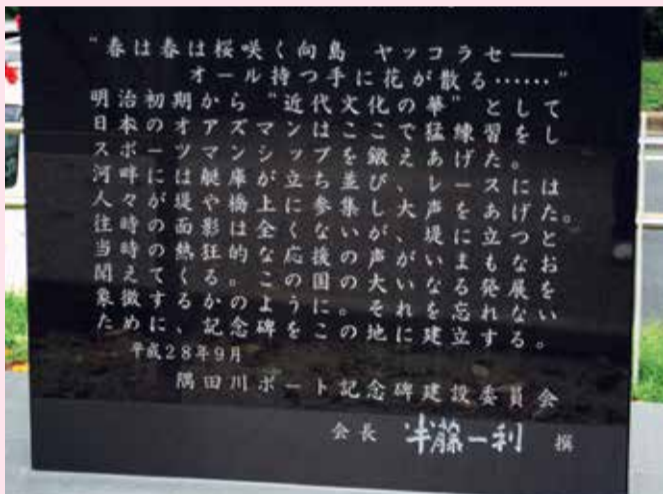 “春は春は桜咲く向島　ヤッコラセ――
オール持つ手に花が散る……”
明治初期から“近代文化の華”として
日本のオアズマンはここで猛練習をし
スポーツマンシップを鍛えあげた。
河畔には艇庫が立ち並び、レースには
人々が堤や橋上に参集し大声をあげた。
往時の面影は全くないが、堤に立つと
当時の熱狂的な応援の声がいまもなお
聞えてくる。この国の大いなる発展を
象徴するかのように。それを忘れない
ために、記念碑をこの地に建立する。
平成28年9月
隅田川ボート記念碑建設委員会
会長　半藤一利　撰